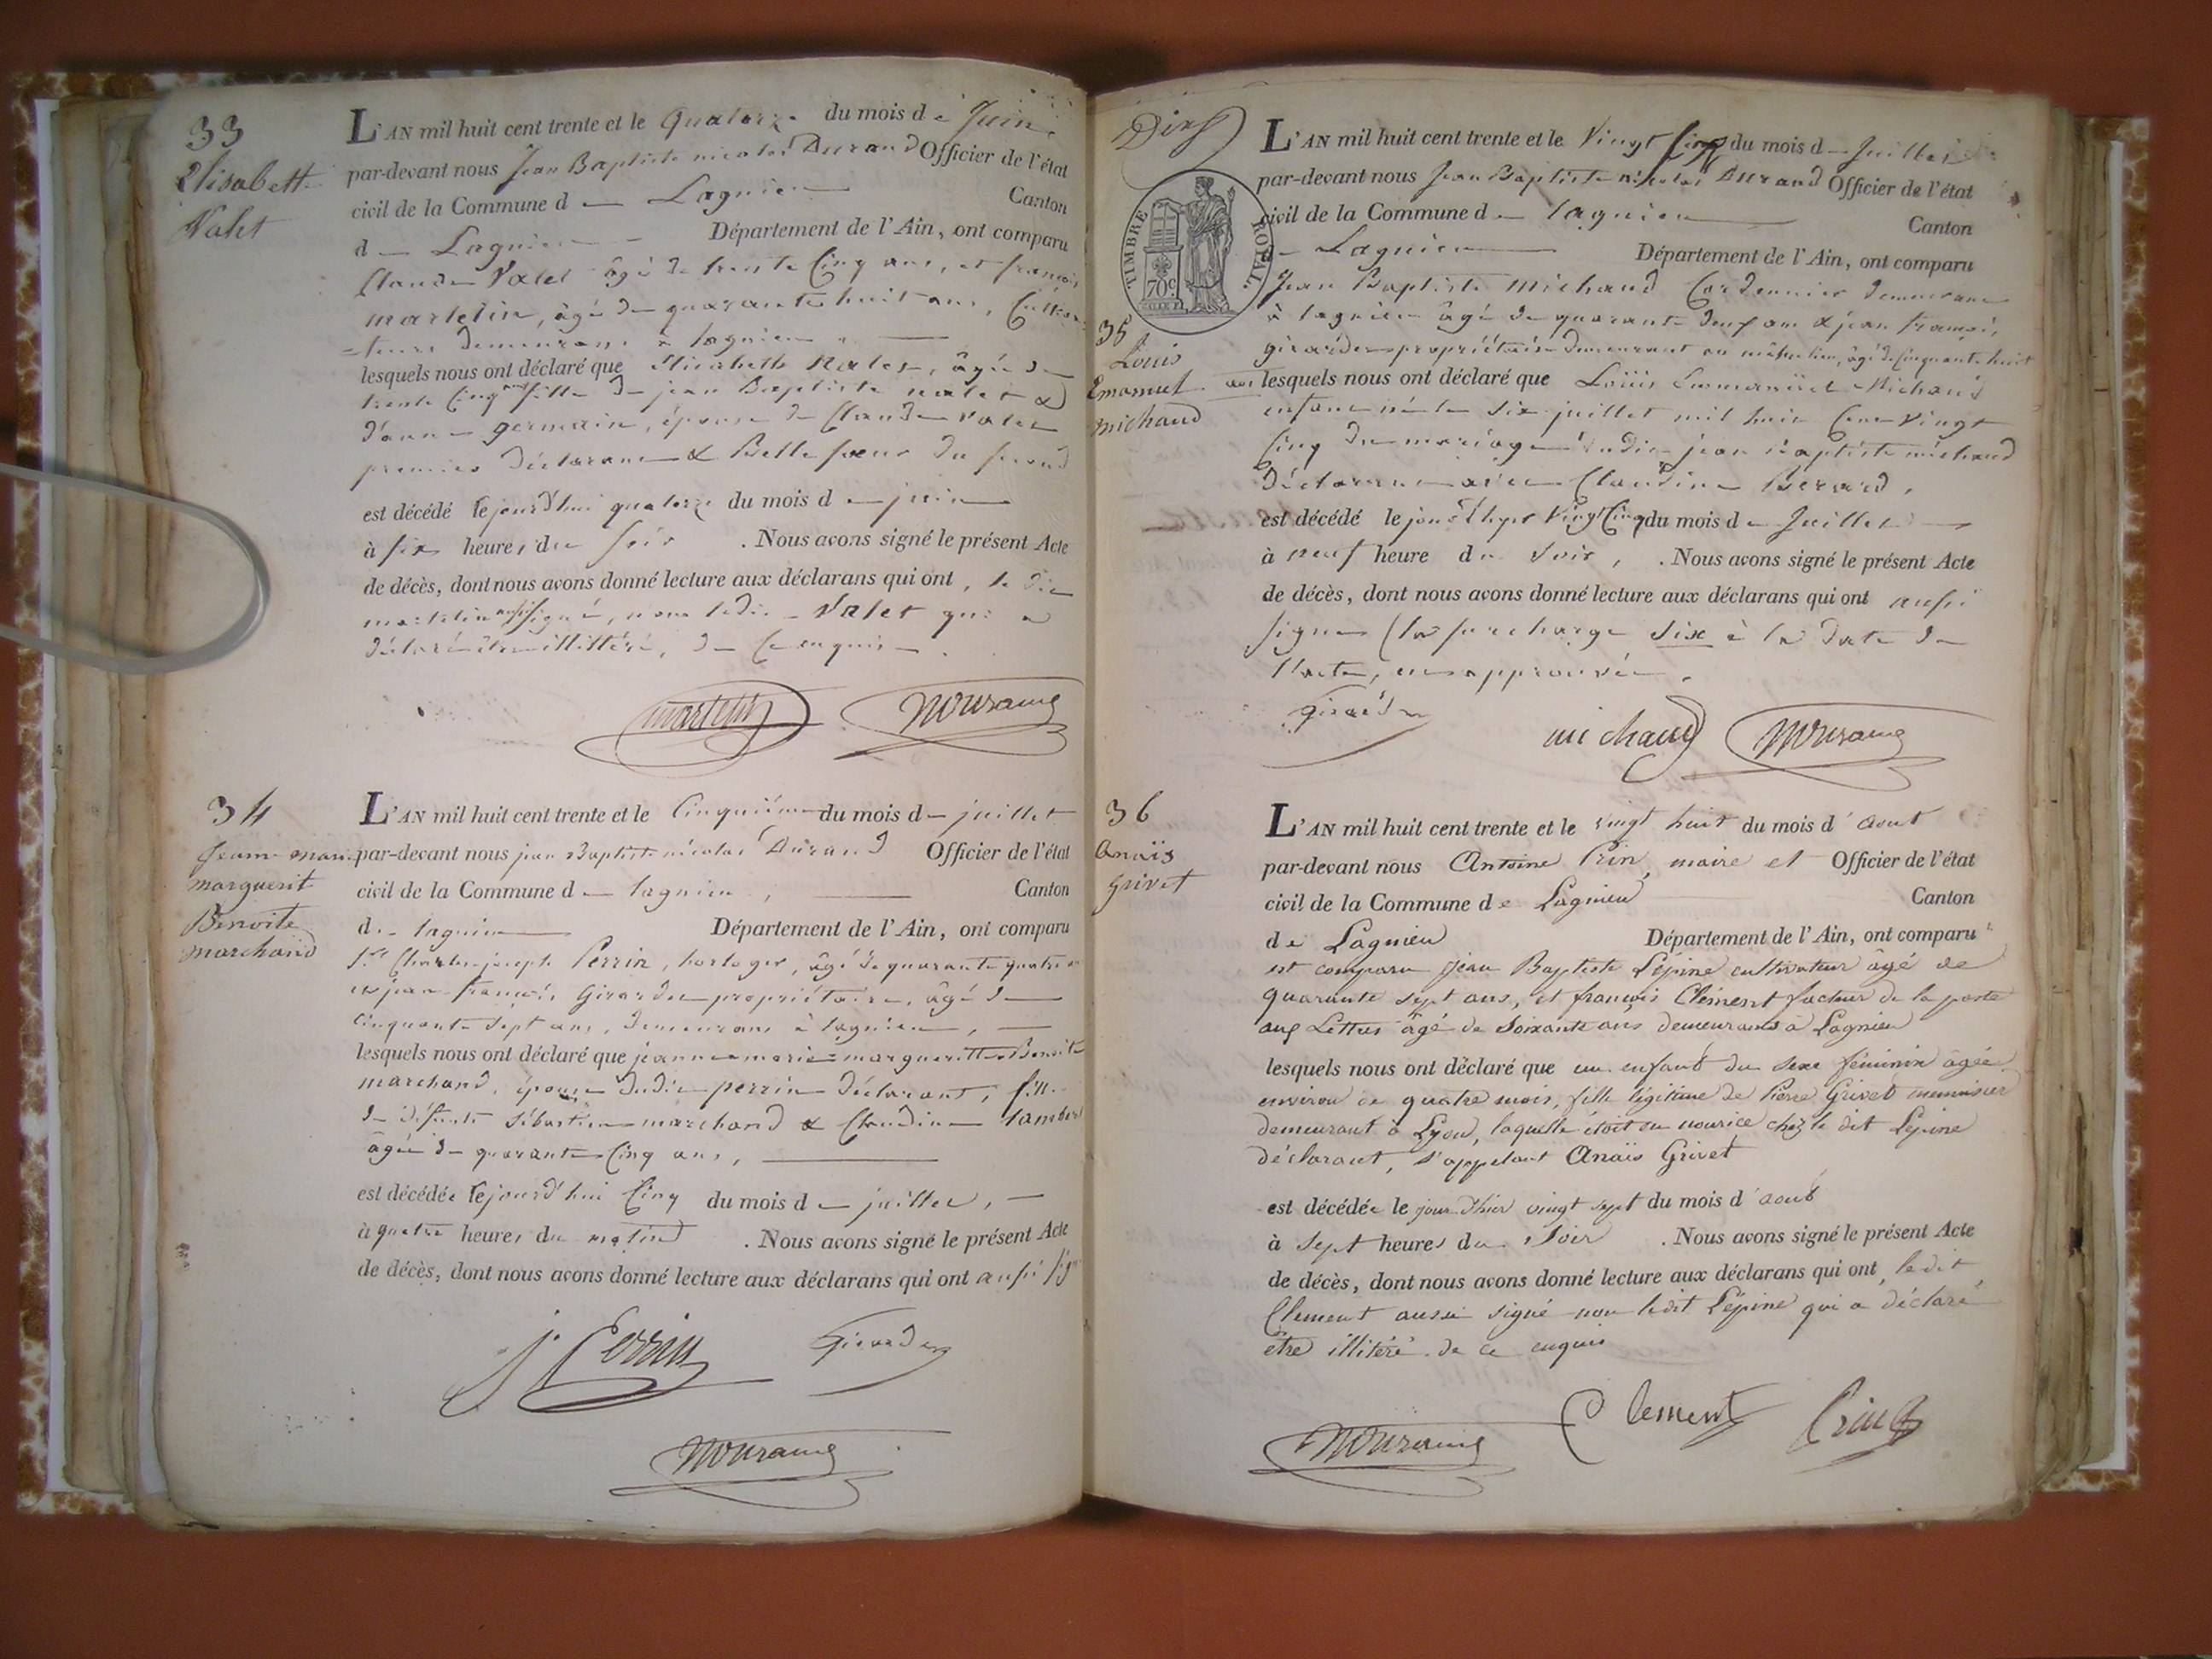 33
Elisabeth
Nalet
L'AN mil huit cent trente et le Quatorze du mois de Juin
par-devant nous Jean Baptiste nicolas Durand Officier de l'état
civil de la Commune d Lagnieu Canton
d Lagnieu Département de l'Ain, ont comparu
Claude Valet âgé de trente Cinq ans, et françois
martelin, âgé de quarante huit ans, Cultiva=
=teurs demeurans à lagnieu
lesquels nous ont déclaré que Elisabeth Nalet, âgée de
trente Cinq ans fille de jean Baptiste nalet &
d'anne germain, épouse de Claude Valet
premier déclarant & Belle soeur du second
est décédé le jourd'hui quatorze du mois de juin
à six heures du soir . Nous avons signé le présent Acte
de décès, dont nous avons donné lecture aux déclarans qui ont, le dit
martelin aussi signé, non ledit Valet qui a
déclaré être illittéré, de Ce enquis.
martelin NDurand
34
Jeanne-marie
marguerit
Benoite
marchand
L'AN mil huit cent trente et le Cinquième du mois de juillet
par-devant nous jean Baptiste nicolas Durand Officier de l'état
civil de la Commune d lagnieu, Canton
de lagnieu Département de l'Ain, ont comparu
Sr Charles joseph Perrin, horloger, âgé de quarante quatre ans
et jean françois Girardet propriétaire, âgé de
cinquante sept ans, demeurans à lagnieu,
lesquels nous ont déclaré que jeanne=marie=margueritte Benoite
marchand, épouse dudit perrin déclarant, fille
de défunts sébastien marchand & Claudine lambert
âgée de quarante Cinq ans,
est décédée le jourd'hui Cinq du mois de juillet,
à quatre heures du matin . Nous avons signé le présent Acte
de décès, dont nous avons donné lecture aux déclarans qui ont aussi sig
J Perrin
NDurand
TIMBRE ROYAL.
70c
35
Louis
Emanuel
michaud
L'AN mil huit cent trente et le Vingt Cinq du mois de Juillet
par-devant nous Jean Baptiste nicolas Durand Officier de l'état
civil de la Commune d lagnieu Canton
Lagnieu Département de l'Ain, ont comparu
Jean Baptiste Michaud Cordonnier demeurant
à lagnieu âgé de quarante deux ans & jean françois
propriétaire demeurant au même lieu, âgé de Cinquante huit
ans lesquels nous ont déclaré que Loüis Emmanüel Michaud
enfant né le six juillet mil huit Cent Vingt
Cinq du mariage dudit jean Baptiste michaud
déclarant avec Claudine Berard,
est décédé le jour d'hyer Vingt Cinq du mois de Juillet
à neuf heure du soir, . Nous avons signé le présent Acte
de décès, dont nous avons donné lecture aux déclarans qui ont aussi
signé (la surcharge six à la date de
l'acte, est approuvée.
michaud NDurand
36
Anaïs
Grivet
L'AN mil huit cent trente et le vingt huit du mois d'aout
par-devant nous Antoine Prin, maire et Officier de l'état
civil de la Commune de Lagnieu Canton
de Lagnieu Département de l'Ain, ont comparu
est comparu Jean Baptiste Lépine cultivateur âgé de
quarante sept ans, et françois Clément facteur de la poste
aux Lettres âgé de soixante ans demeurans à Lagnieu
lesquels nous ont déclaré que un enfant du sexe féminin âgée
environ de quatre mois, fille légitime de Pierre Grivet menuisier
demeurant à Lyon, laquelle étoit en nourice chez le dit Lepine
déclarant, s'appelant Anaïs Grivet
est décédée le jour d'hier vingt sept du mois d'aout
à sept heures du soir . Nous avons signé le présent Acte
de décès, dont nous avons donné lecture aux déclarans qui ont, le dit
Clement aussi signé non ledit Lépine qui a déclaré
être illitéré de ce enquis
Clement Prin
NDurand